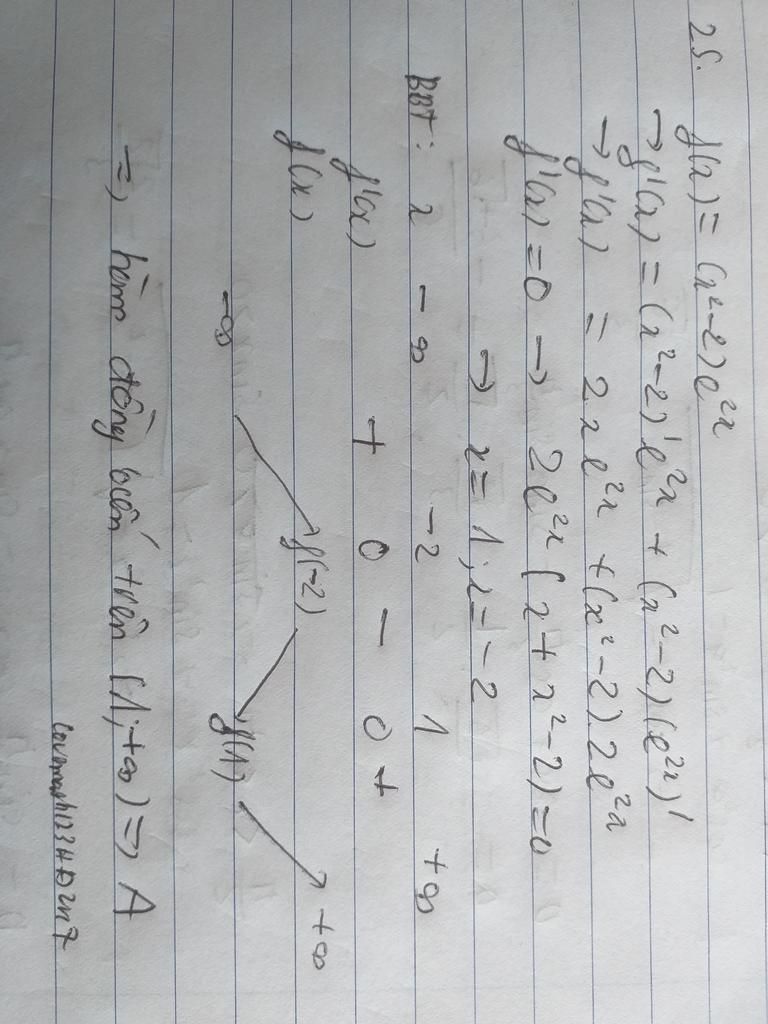 25. f(x) = (x²-2)e²ˣ
→ f'(x) = (x²-2)'e²ˣ + (x²-2)(e²ˣ)'
→ f'(x) = 2xe²ˣ + (x²-2).2e²ˣ
f'(x) = 0 → 2e²ˣ(x + x²-2) = 0
→ x = 1; x = -2
BBT: x -∞ -2 1 +∞
f'(x) + 0 - 0 +
f(x) f(-2) +∞
-∞ f(1)
=> hàm đồng biến trên (1; +∞) => A